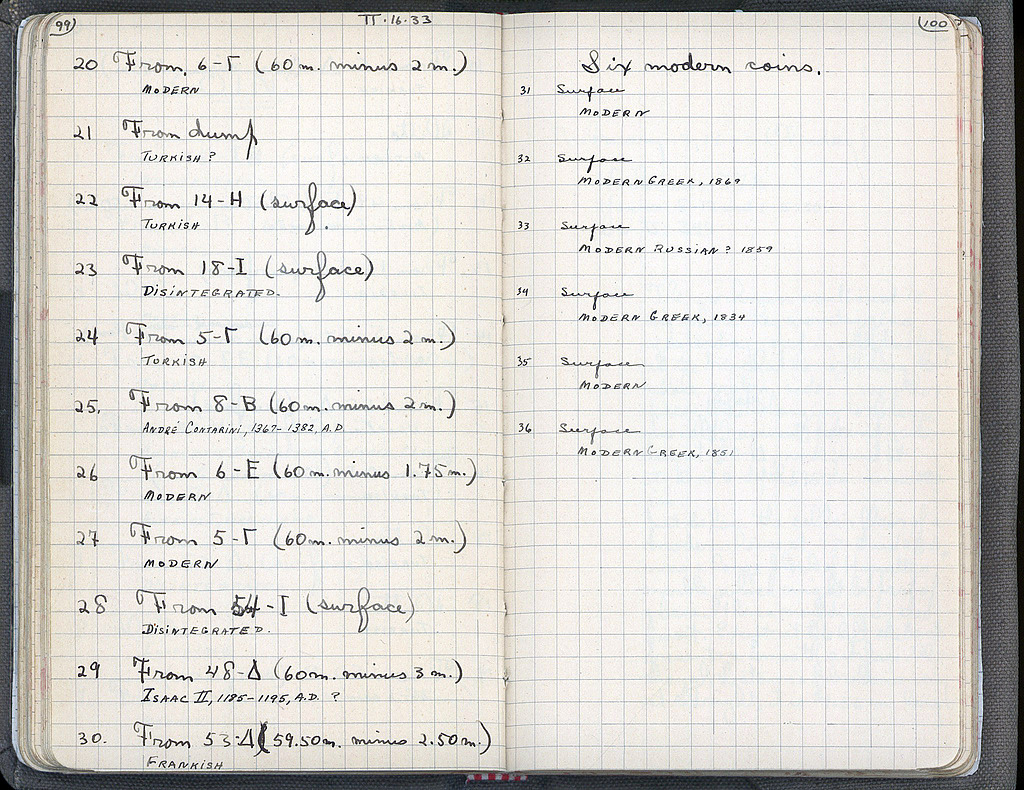 99
II·16·33
20 From 6-Γ (60 m. minus 2 m.)
MODERN
21 From dump
TURKISH ?
22 From 14-H (surface)
TURKISH
23 From 18-I (surface)
DISINTEGRATED.
24 From 5-Γ (60 m. minus 2 m.)
TURKISH
25. From 8-B (60 m. minus 2 m.)
ANDRÉ CONTARINI, 1367-1382, A.D.
26 From 6-E (60 m. minus 1.75 m.)
MODERN
27 From 5-Γ (60 m. minus 2 m.)
MODERN
28 From 54-I (surface)
DISINTEGRATED.
29 From 48-Δ (60 m. minus 3 m.)
ISAAC II, 1185-1195, A.D. ?
30. From 53-Δ (59.50 m. minus 2.50 m.)
FRANKISH
100
Six modern coins.
31 Surface
MODERN
32 Surface
MODERN GREEK, 1869
33 Surface
MODERN RUSSIAN ? 1859
34 Surface
MODERN GREEK, 1834
35 Surface
MODERN
36 Surface
MODERN GREEK, 1851